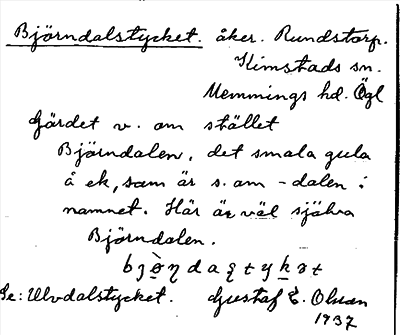 Björndalstycket. åker. Rundstorp.
Kimstads sn.
Memmings hd. Ögl
Gärdet v. om stället
Björndalen, det smala gula
å ek, som är s. om -dalen i
namnet. Här är väl själva
Björndalen.
Se: Ulvdalstycket. Gustaf E. Olsson
1937